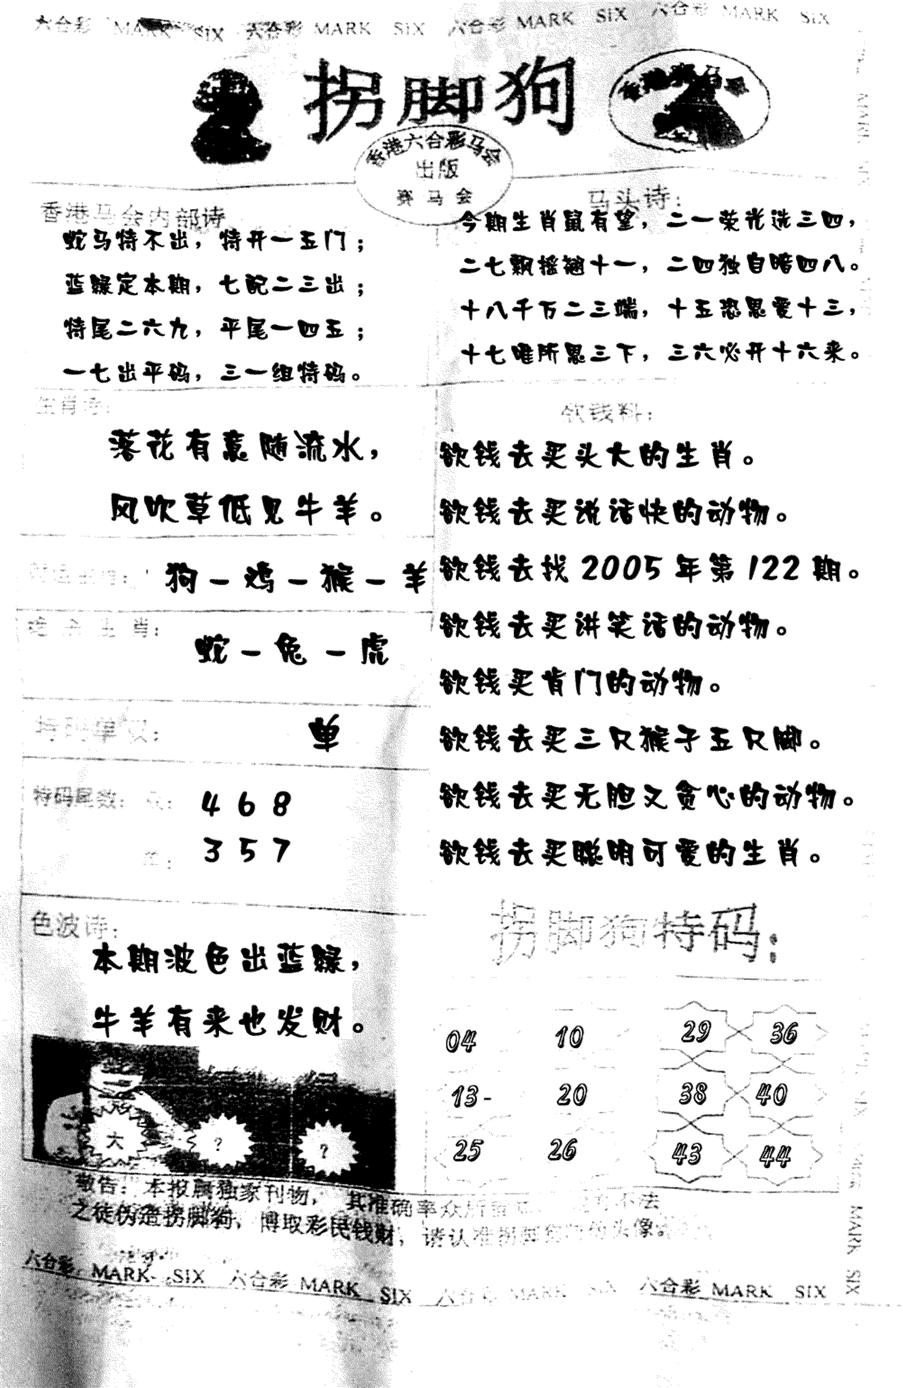 六合彩 MARK SIX 六合彩 MARK SIX 六合彩 MARK SIX 六合彩 MARK SIX
拐脚狗
香港赛马会
香港六合彩马会
出版
赛马会
香港马会内部诗
蛇马特不出，特开一五门；
蓝绿定本期，七配二三出；
特尾二六九，平尾一四五；
一七出平码，三一组特码。
马头诗：
今期生肖鼠有望，二一荣光选三四，
二七飘摇翘十一，二四独自暗四八。
十八千万二三端，十五恐思爱十三，
十七唯所思三下，三六必开十六来。
生肖诗：
落花有意随流水，
风吹草低见牛羊。
狗－鸡－猴－羊
生肖：
蛇－兔－虎
特码单双：
单
特码尾数：双： 4 6 8
单： 3 5 7
色波诗：
本期波色出蓝绿，
牛羊有来也发财。
大 ？ ？
欲钱料：
欲钱去买头大的生肖。
欲钱去买说话快的动物。
欲钱去找 2005 年第 122 期。
欲钱去买讲笑话的动物。
欲钱买肯门的动物。
欲钱去买三只猴子五只脚。
欲钱去买无胆又贪心的动物。
欲钱去买聪明可爱的生肖。
拐脚狗特码：
04 10 29 36
13- 20 38 40
25 26 43 44
敬告：本报属独家刊物，其准确率众所 不法
之徒伪造拐脚狗，博取彩民钱财，请认准拐脚 头像。
六合彩 MARK SIX 六合彩 MARK SIX 六合彩 MARK SIX 六合彩 MARK SIX
MARK SIX